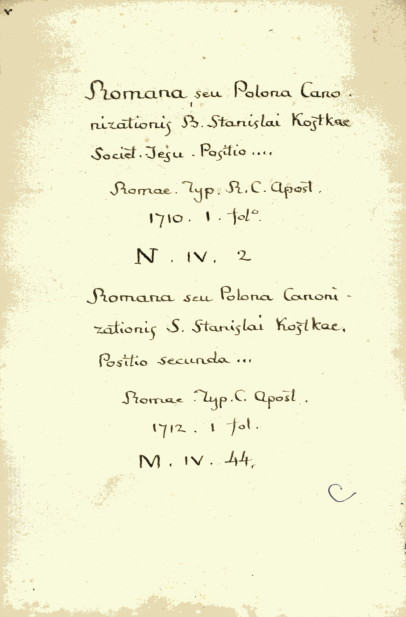 Romana seu Polona Cano-
nizationis B. Stanislai Kostkae
Societ. Jesu. Positio ....
Romae. Typ. R. C. Apost.
1710. 1. folº.
N. IV. 2
Romana seu Polona Canoni-
zationis S. Stanislai Kostkae.
Positio secunda ...
Romae. Typ. C. Apost.
1712. 1 fol.
M. IV. 44.
C